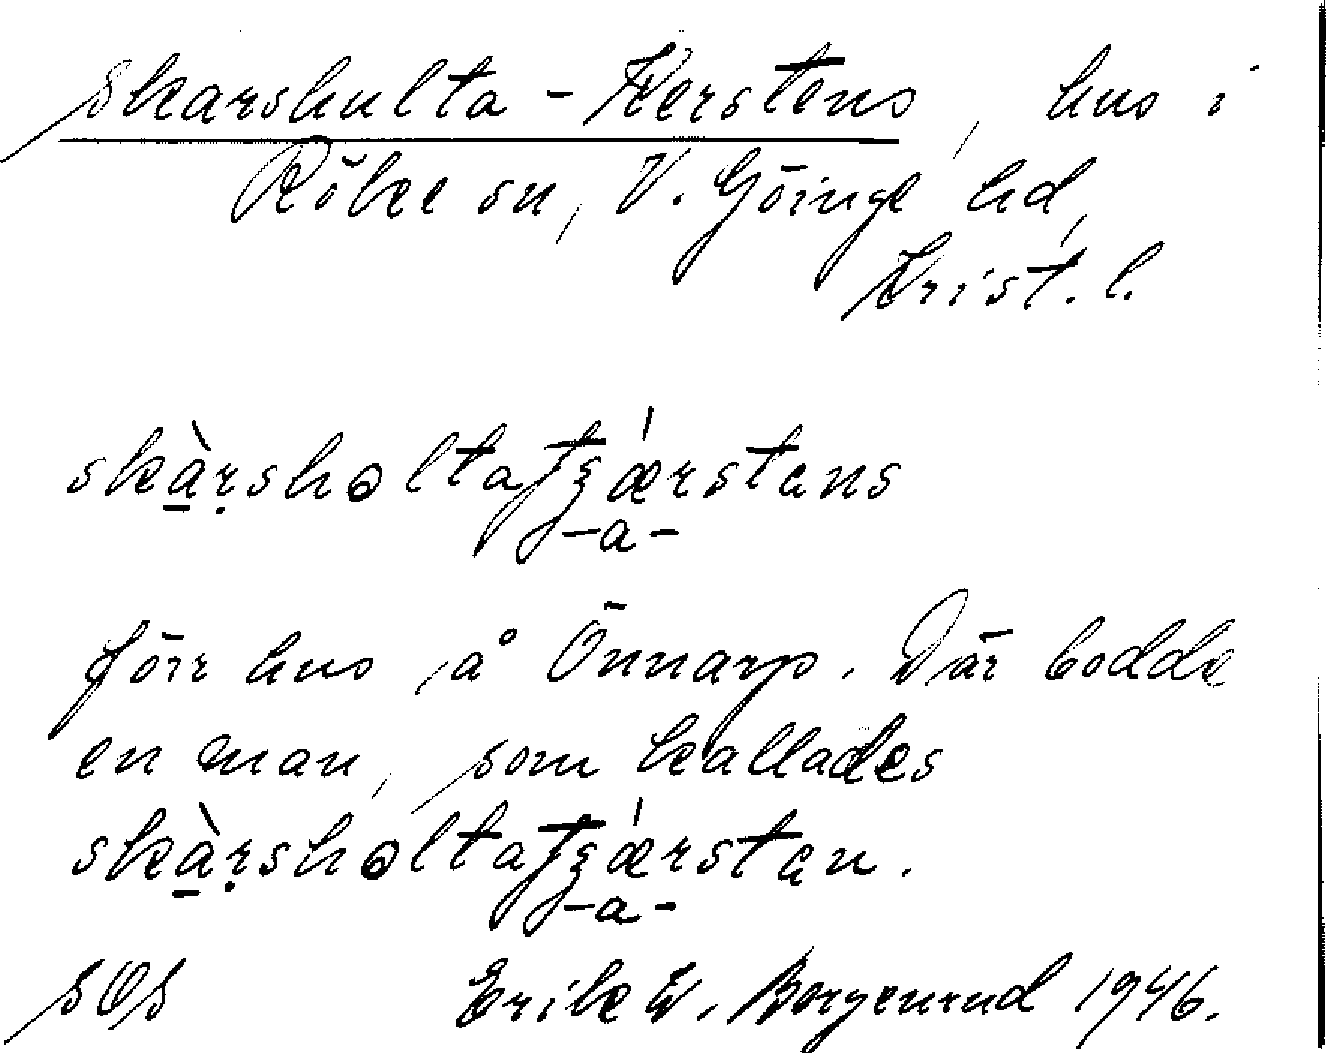 Skarshulta-Kerstens, hus i
Röke sn, V. Göinge hd,
Krist. l.
skàr̥sholtatʃǽrstens
-a-
förr hus på Önnarp. Där bodde
en man, som kallades
skàr̥sholtatʃǽrsten.
-a-
SOS Erik W. Borgenrud 1946.